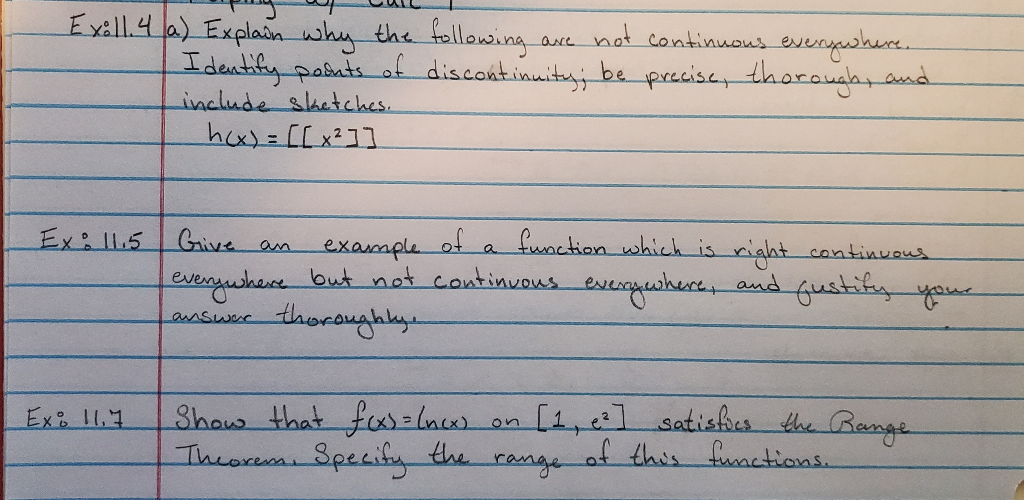 Ex: 11.4 a) Explain why the following are not continuous everywhere.
Identify points of discontinuity; be precise, thorough, and
include sketches.
h(x) = [[x²]]
Ex: 11.5 Give an example of a function which is right continuous
everywhere but not continuous everywhere, and justify your
answer thoroughly.
Ex: 11.7 Show that f(x)=ln(x) on [1, e²] satisfies the Range
Theorem. Specify the range of this functions.